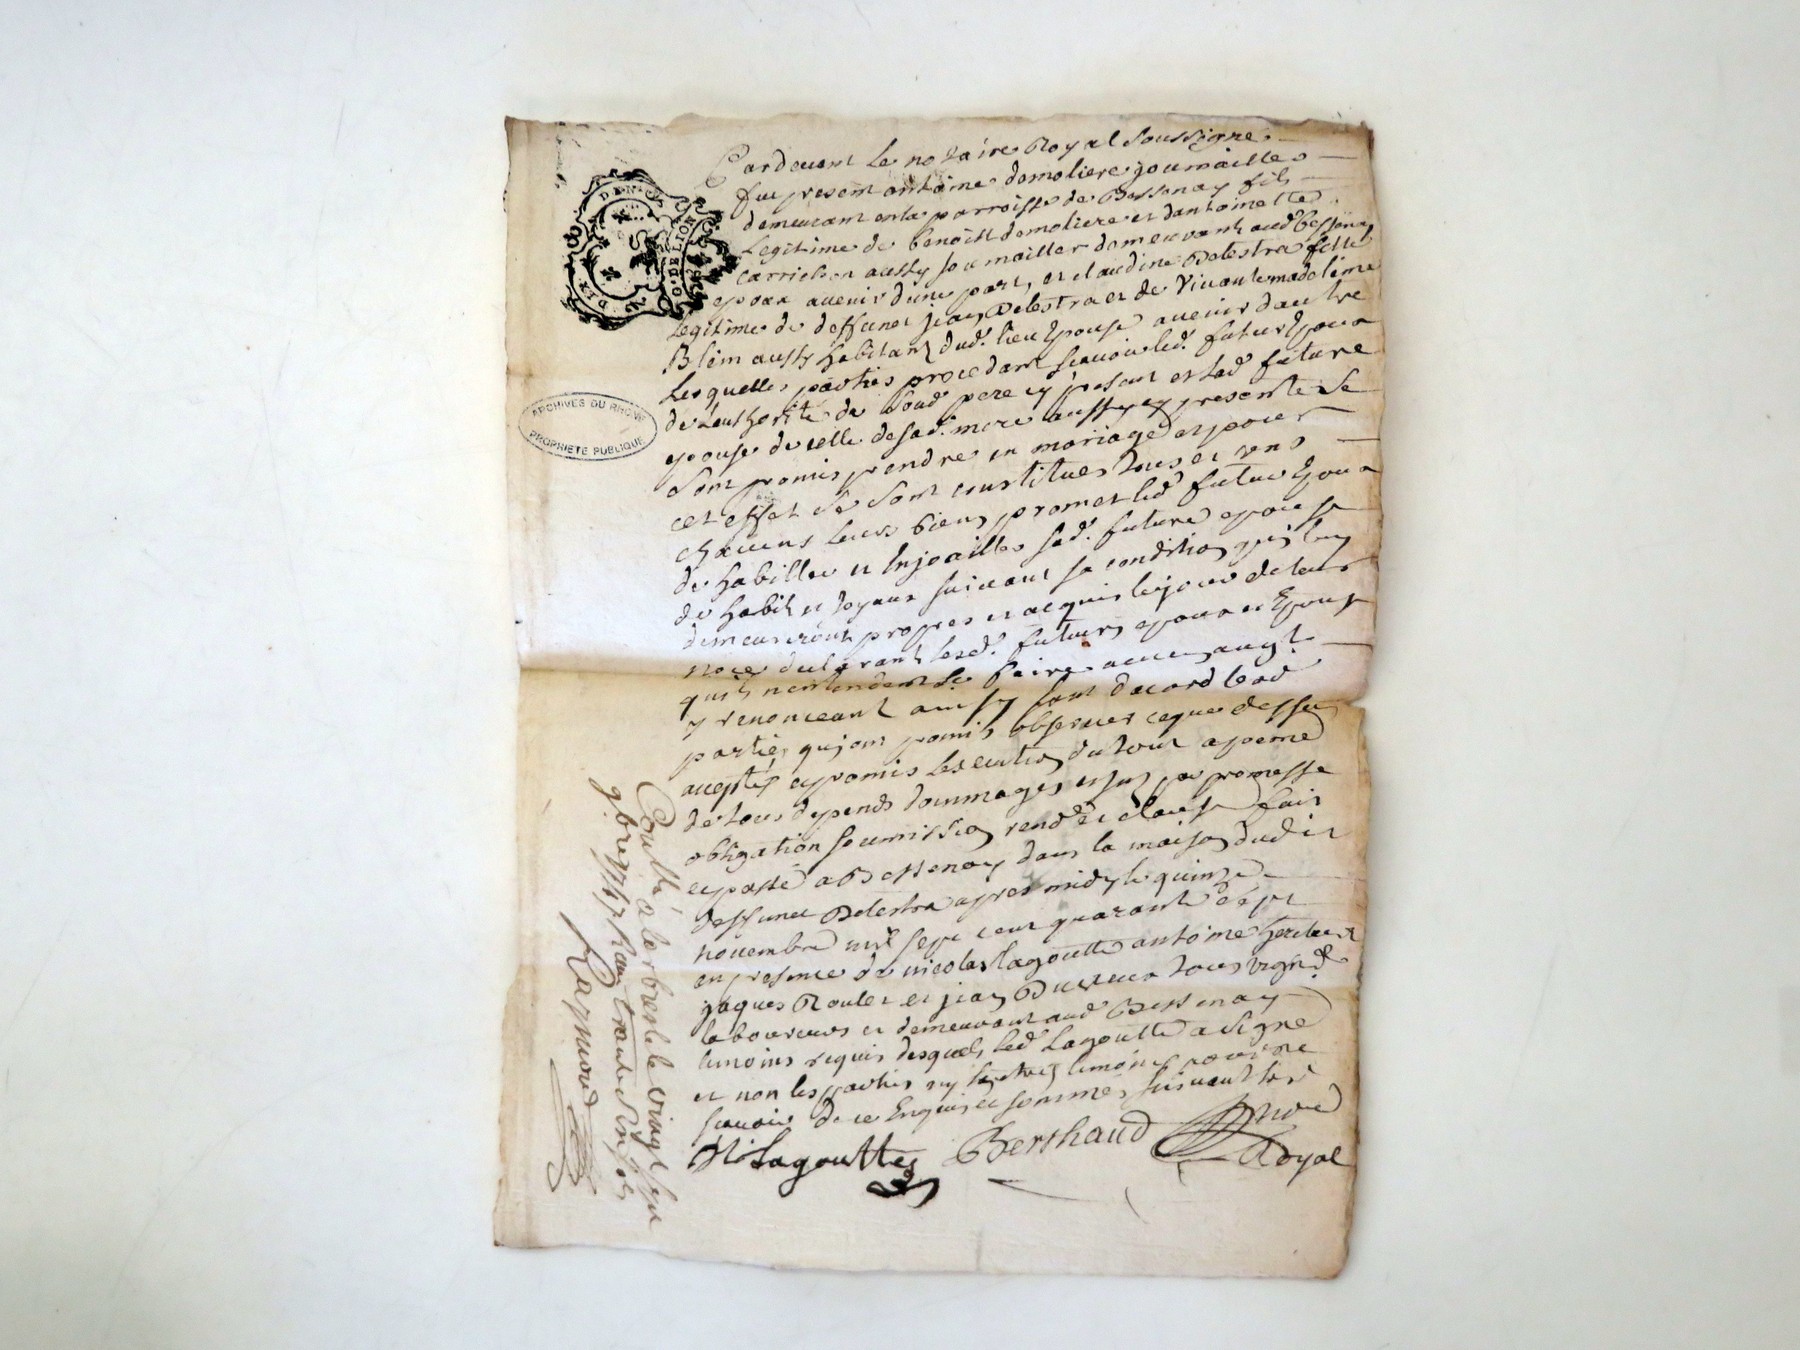 Pardevant le notaire Royal soussigne
fut present antoine demoliere journaillee
demeurant en la parroisse de Bessenay fils
Legitime de benoist demoliere et dantoinette
carrichon aussy journaillier demeurant aud bessenay
epoux avenir dune part, et claudine Delestra fille
Legitime de deffunct jean Delestra et de Vivante madeleine
Blein aussy habitant dud. lieu Epouse avenir dautre
Lesquelles parties procedant scavoir led. futur Epoux
de Lauthorite de soud pere cy present et lad future
epouse de celle de sad. mere aussy cy presente se
sont promis prendre en mariage et pour
cet effet se sont constitues tous et uns
chacuns leurs biens promet led futur Epoux
de habiller et Enjoailler sad. future epouse
de habits et joyaux suivant sa condition qui luy
demeureront propres et acquis le jour de leur
noce declarant lesd. futurs epoux et Epouse
quils nentendent se faire aucun augt.
y renonceant ainsy sont dacord lesd
parties qui ont promis observer ce que dessus
accepté et promis lexecution du tout a peine
de tous depends dommages et jnt par promesse
obligation soumission renon et clause fait
et passé a Bessenay dans la maison dudit
deffunct Delestra apres midy le quinze
novembre mil sept cent quarante sept
en presence de nicolas lagoutte antoine
jaques Roulet et jean tous vignd.
laboureurs et demeurant aud Bessenay
temoins requis desquels led Lagoutte a signe
et non les parties ny les autres temoins pour ne
scavoir de ce Enquis et sommés suivant lord
N Lagoutte Berthaud nore
Royal
ARCHIVES DU RHÔNE
PROPRIÉTÉ PUBLIQUE
Conllé a larbresle le vingt sept
9bre 1747 Reçu trante six sols